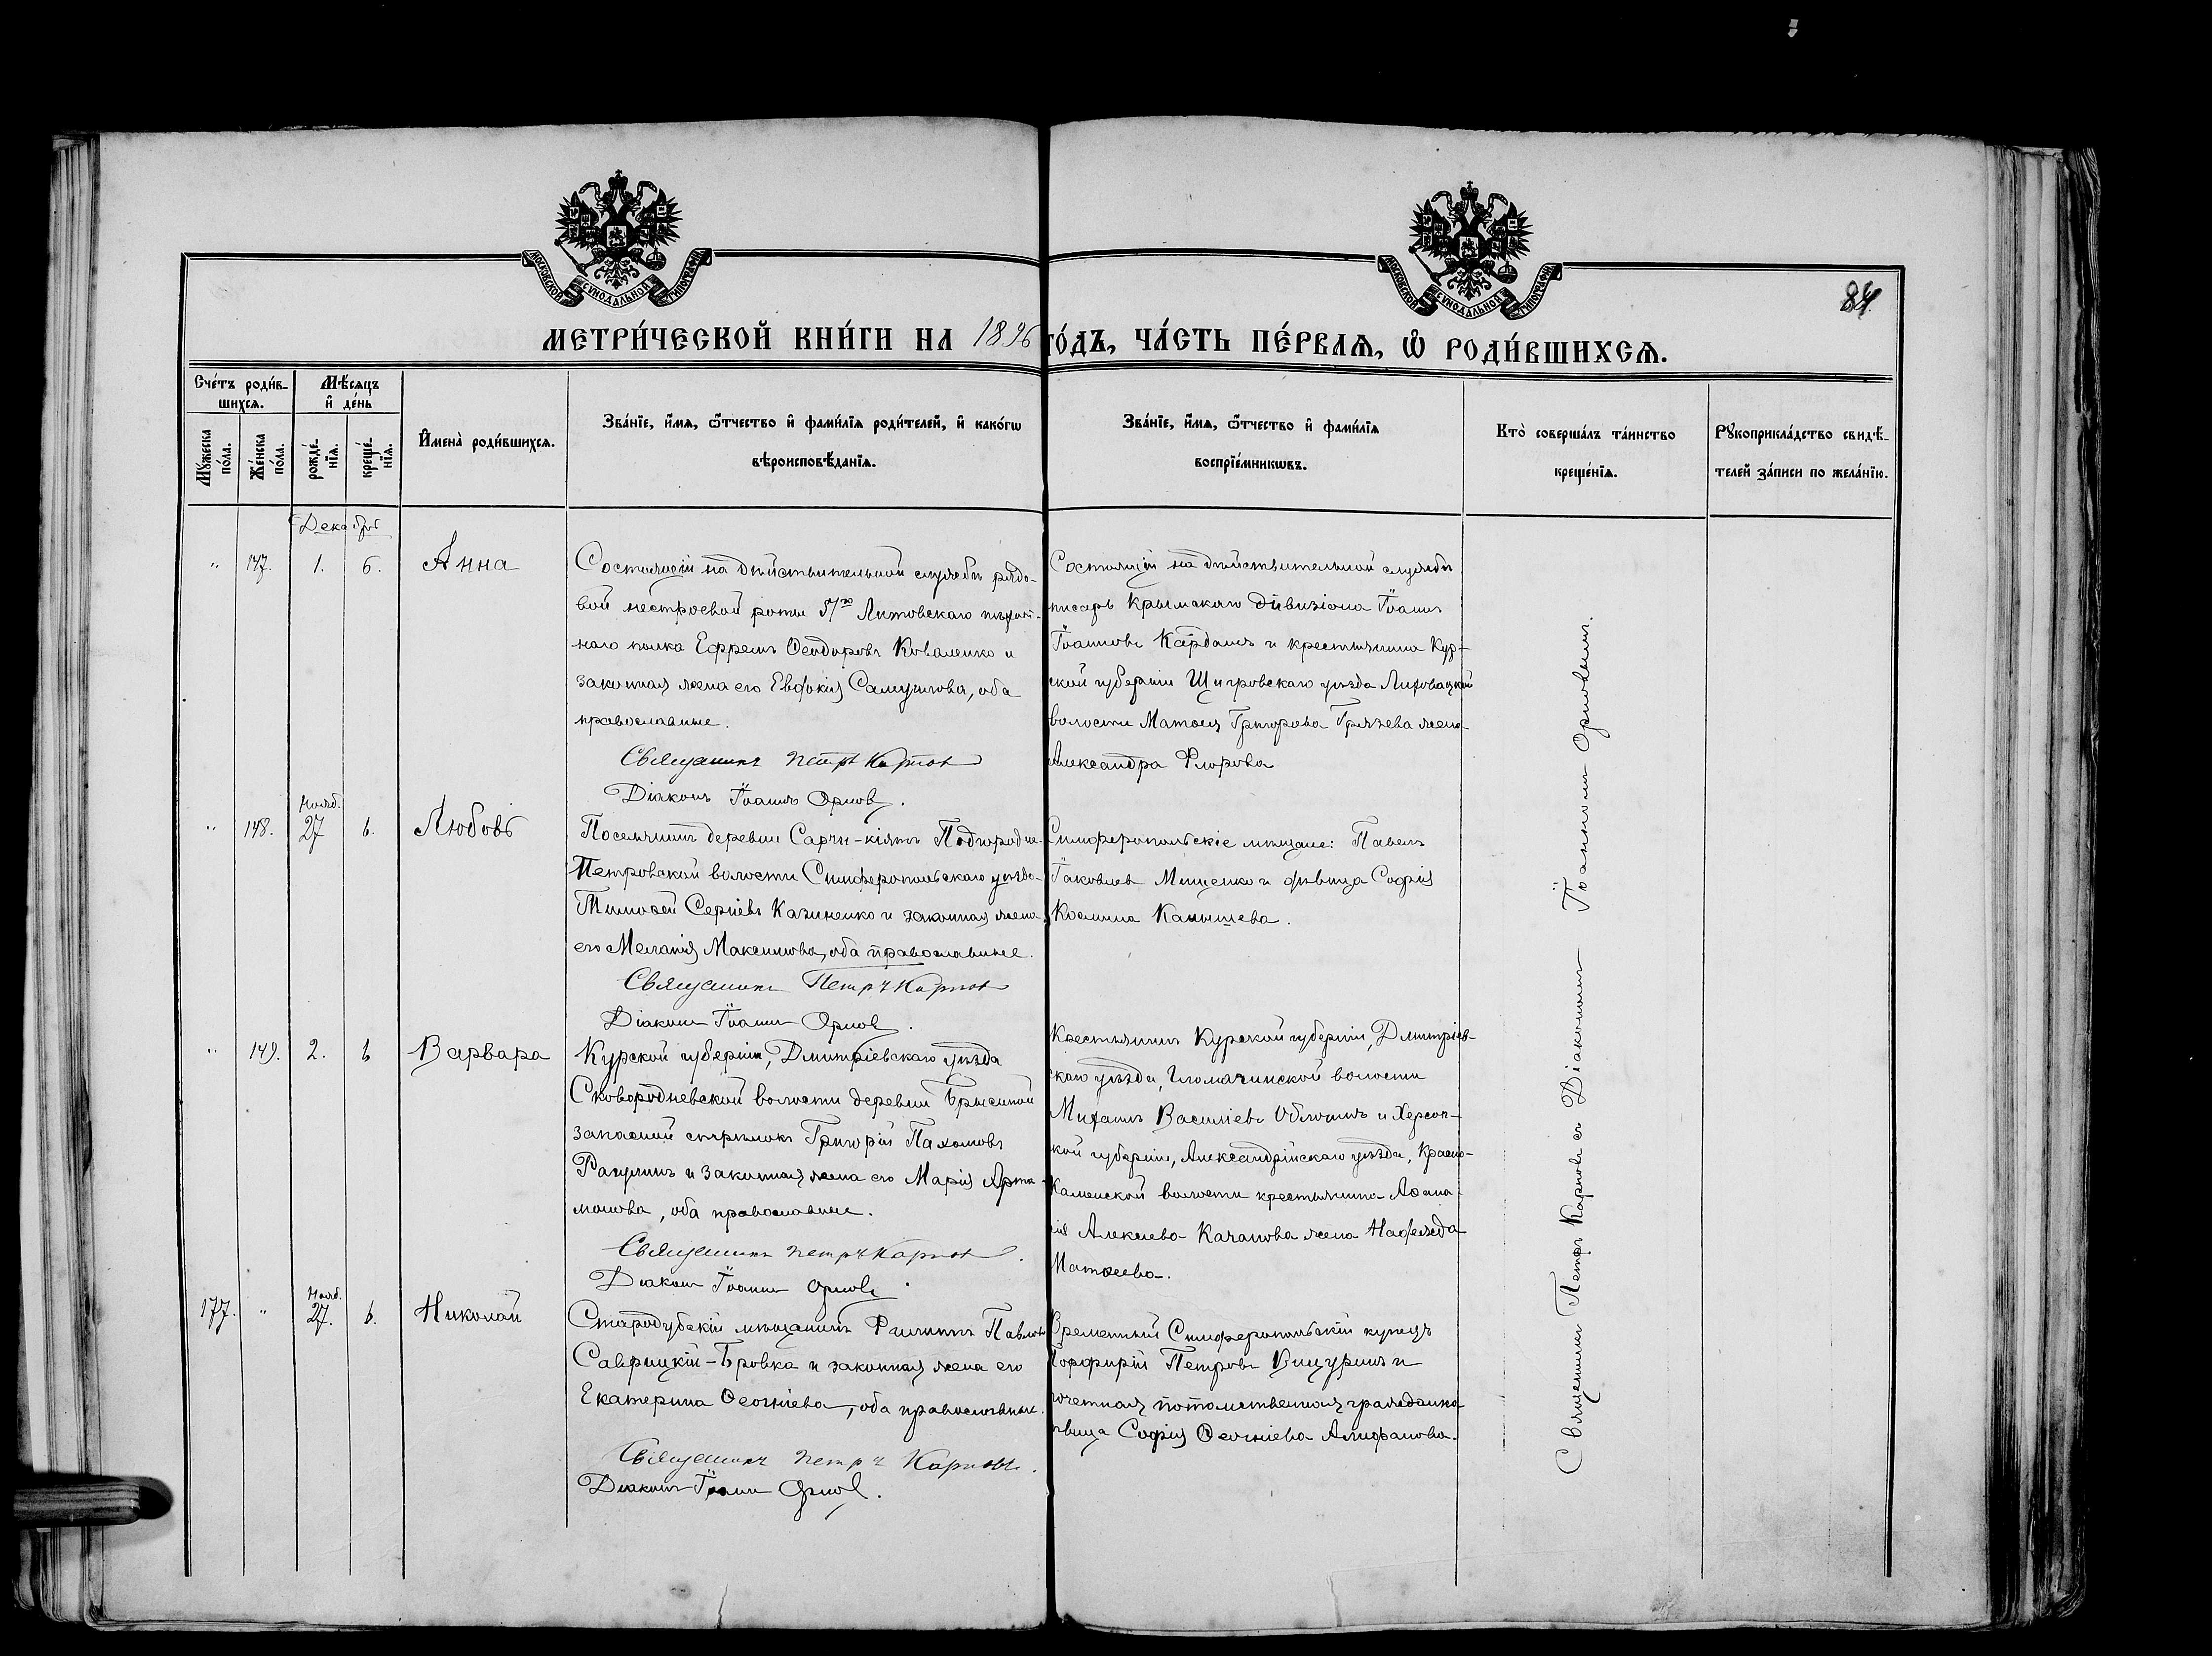 МОСКОВСКОЙ СѴНОДАЛЬНОЙ ТИПОГРАФІИ
МОСКОВСКОЙ СѴНОДАЛЬНОЙ ТИПОГРАФІИ
84.
МЕТРИ́ЧЕСКОЙ КНИ́ГИ НА 1896 ГО́ДЪ, ЧА́СТЬ ПЕ́РВАѦ, Ѡ҆ РОДИ́ВШИХСѦ.
Сче́тъ роди́в-
шихсѧ.
Мѣ́сѧцъ
и҆ де́нь
Мꙋ́жеска
по́ла.
Же́нска
по́ла.
рожде́-
нїѧ.
креще́-
нїѧ.
И҆мена̀ роди́вшихсѧ.
Зва́нїе, и҆́мѧ, ѻ҆́тчество и҆ фами́лїѧ роди́телей, и҆ како́гѡ
вѣроисповѣ́данїѧ.
Зва́нїе, и҆́мѧ, ѻ҆́тчество и҆ фами́лїѧ
воспрїе́мникѡвъ.
Кто̀ соверша́лъ та́инство
креще́нїѧ.
Рꙋкоприкла́дство свидѣ́-
телей за́писи по жела́нїю.
Декабрь
" 147. 1. 6. Анна
Состоящій на дѣйствительной службѣ рядо-
вой нестроевой роты 51го Литовскаго пѣхот-
наго полка Ефремъ Ѳеодоровъ Коваленко и
законная жена его Евдокія Самуилова, оба
православные.
Священникъ Петръ Карпов
Діаконъ Іоаннъ Орлов.
Состоящій на дѣйствительной службѣ
писарь Крымскаго дивизіона Іоаннъ
Іоанновъ Кардашъ и крестьянина Кур-
ской губерніи Щигровскаго уѣзда Липовацкой
волости Матѳея Григорова Грязева жена
Александра Флорова
Нояб.
" 148. 27 6. Любовь
Поселянинъ деревни Сарчи-кіятъ Подгородне-
Петровской волости Симферопольскаго уѣзда
Тимоѳей Сергіевъ Казиненко и законная жена
его Меланія Максимова, оба православные.
Священникъ Петръ Карпов
Діаконъ Іоаннъ Орлов.
Симферопольскіе мѣщане: Павелъ
Іаковлев Мищенко и дѣвица Софія
Косьмина Канышева.
" 149. 2. 6 Варвара
Курской губерніи, Дмитріевскаго уѣзда
Сковородневской волости деревни
запасный стрѣлокъ Григорій Пахомовъ
Рагулинъ и законная жена его Марія Арта-
монова, оба православные.
Священникъ Петръ Карпов.
Діаконъ Іоаннъ Орловъ.
Крестьянинъ Курской губерніи, Дмитріев-
скаго уѣзда, волости
Михаилъ Василіевъ и Херсон-
кой губерніи, Александрійскаго уѣзда, Красно-
Каменской волости крестьянина Аѳана-
сія Алексѣева Качанова жена Надежда
Матѳеева.
Нояб.
177. " 27. 6. Николай
Стародубскій мѣщанинъ Филиппъ Павловъ
Саврицкій-Бровка и законная жена его
Екатерина Ѳеогніева, оба православные.
Священникъ Петръ Карповъ.
Діаконъ Іоаннъ Орлов.
Временный Симферопольскій купецъ
Порфирій Петровъ и
почетная потомственная гражданка
дѣвица Софія Ѳеогніева Алифанова.
Священникъ Петръ Карповъ съ Діакономъ Іоанномъ Орловымъ.